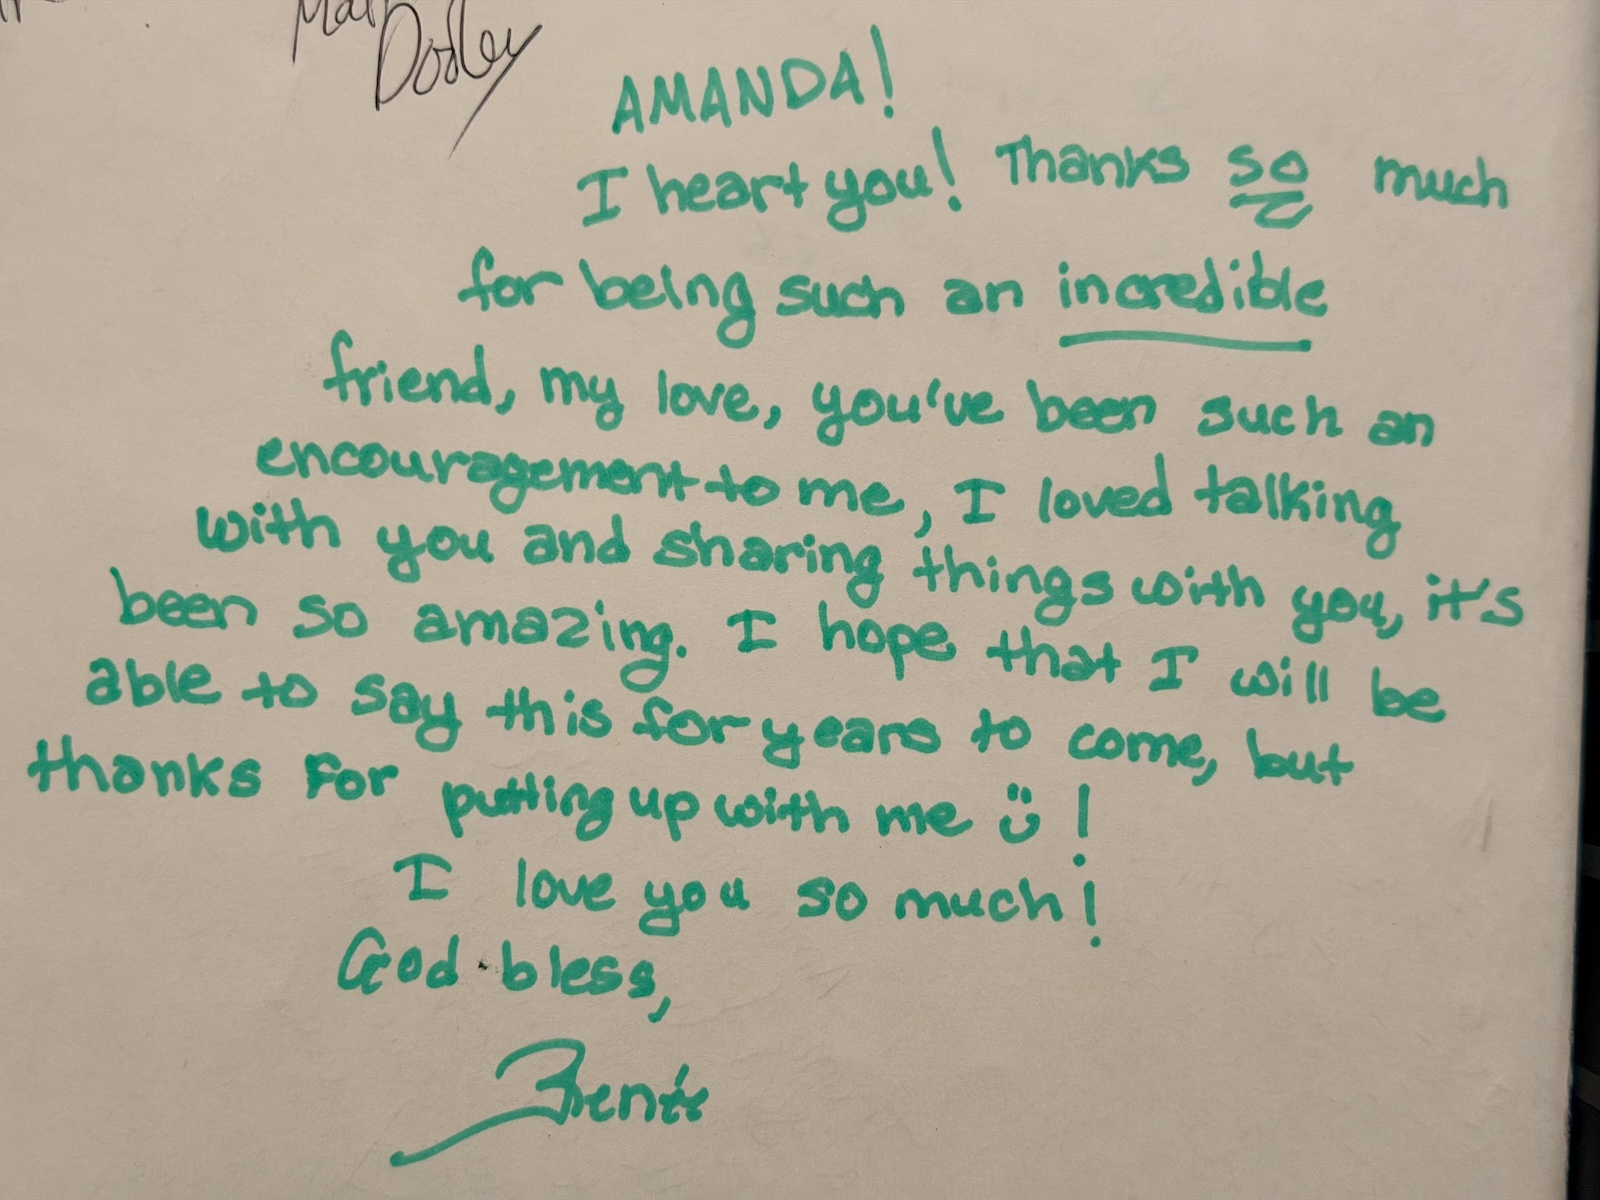 Dooley
AMANDA!
I heart you! Thanks so much
for being such an incredible
friend, my love, you've been such an
encouragement to me, I loved talking
with you and sharing things with you, it's
been so amazing. I hope that I will be
able to say this for years to come, but
thanks for putting up with me !
I love you so much!
God bless,